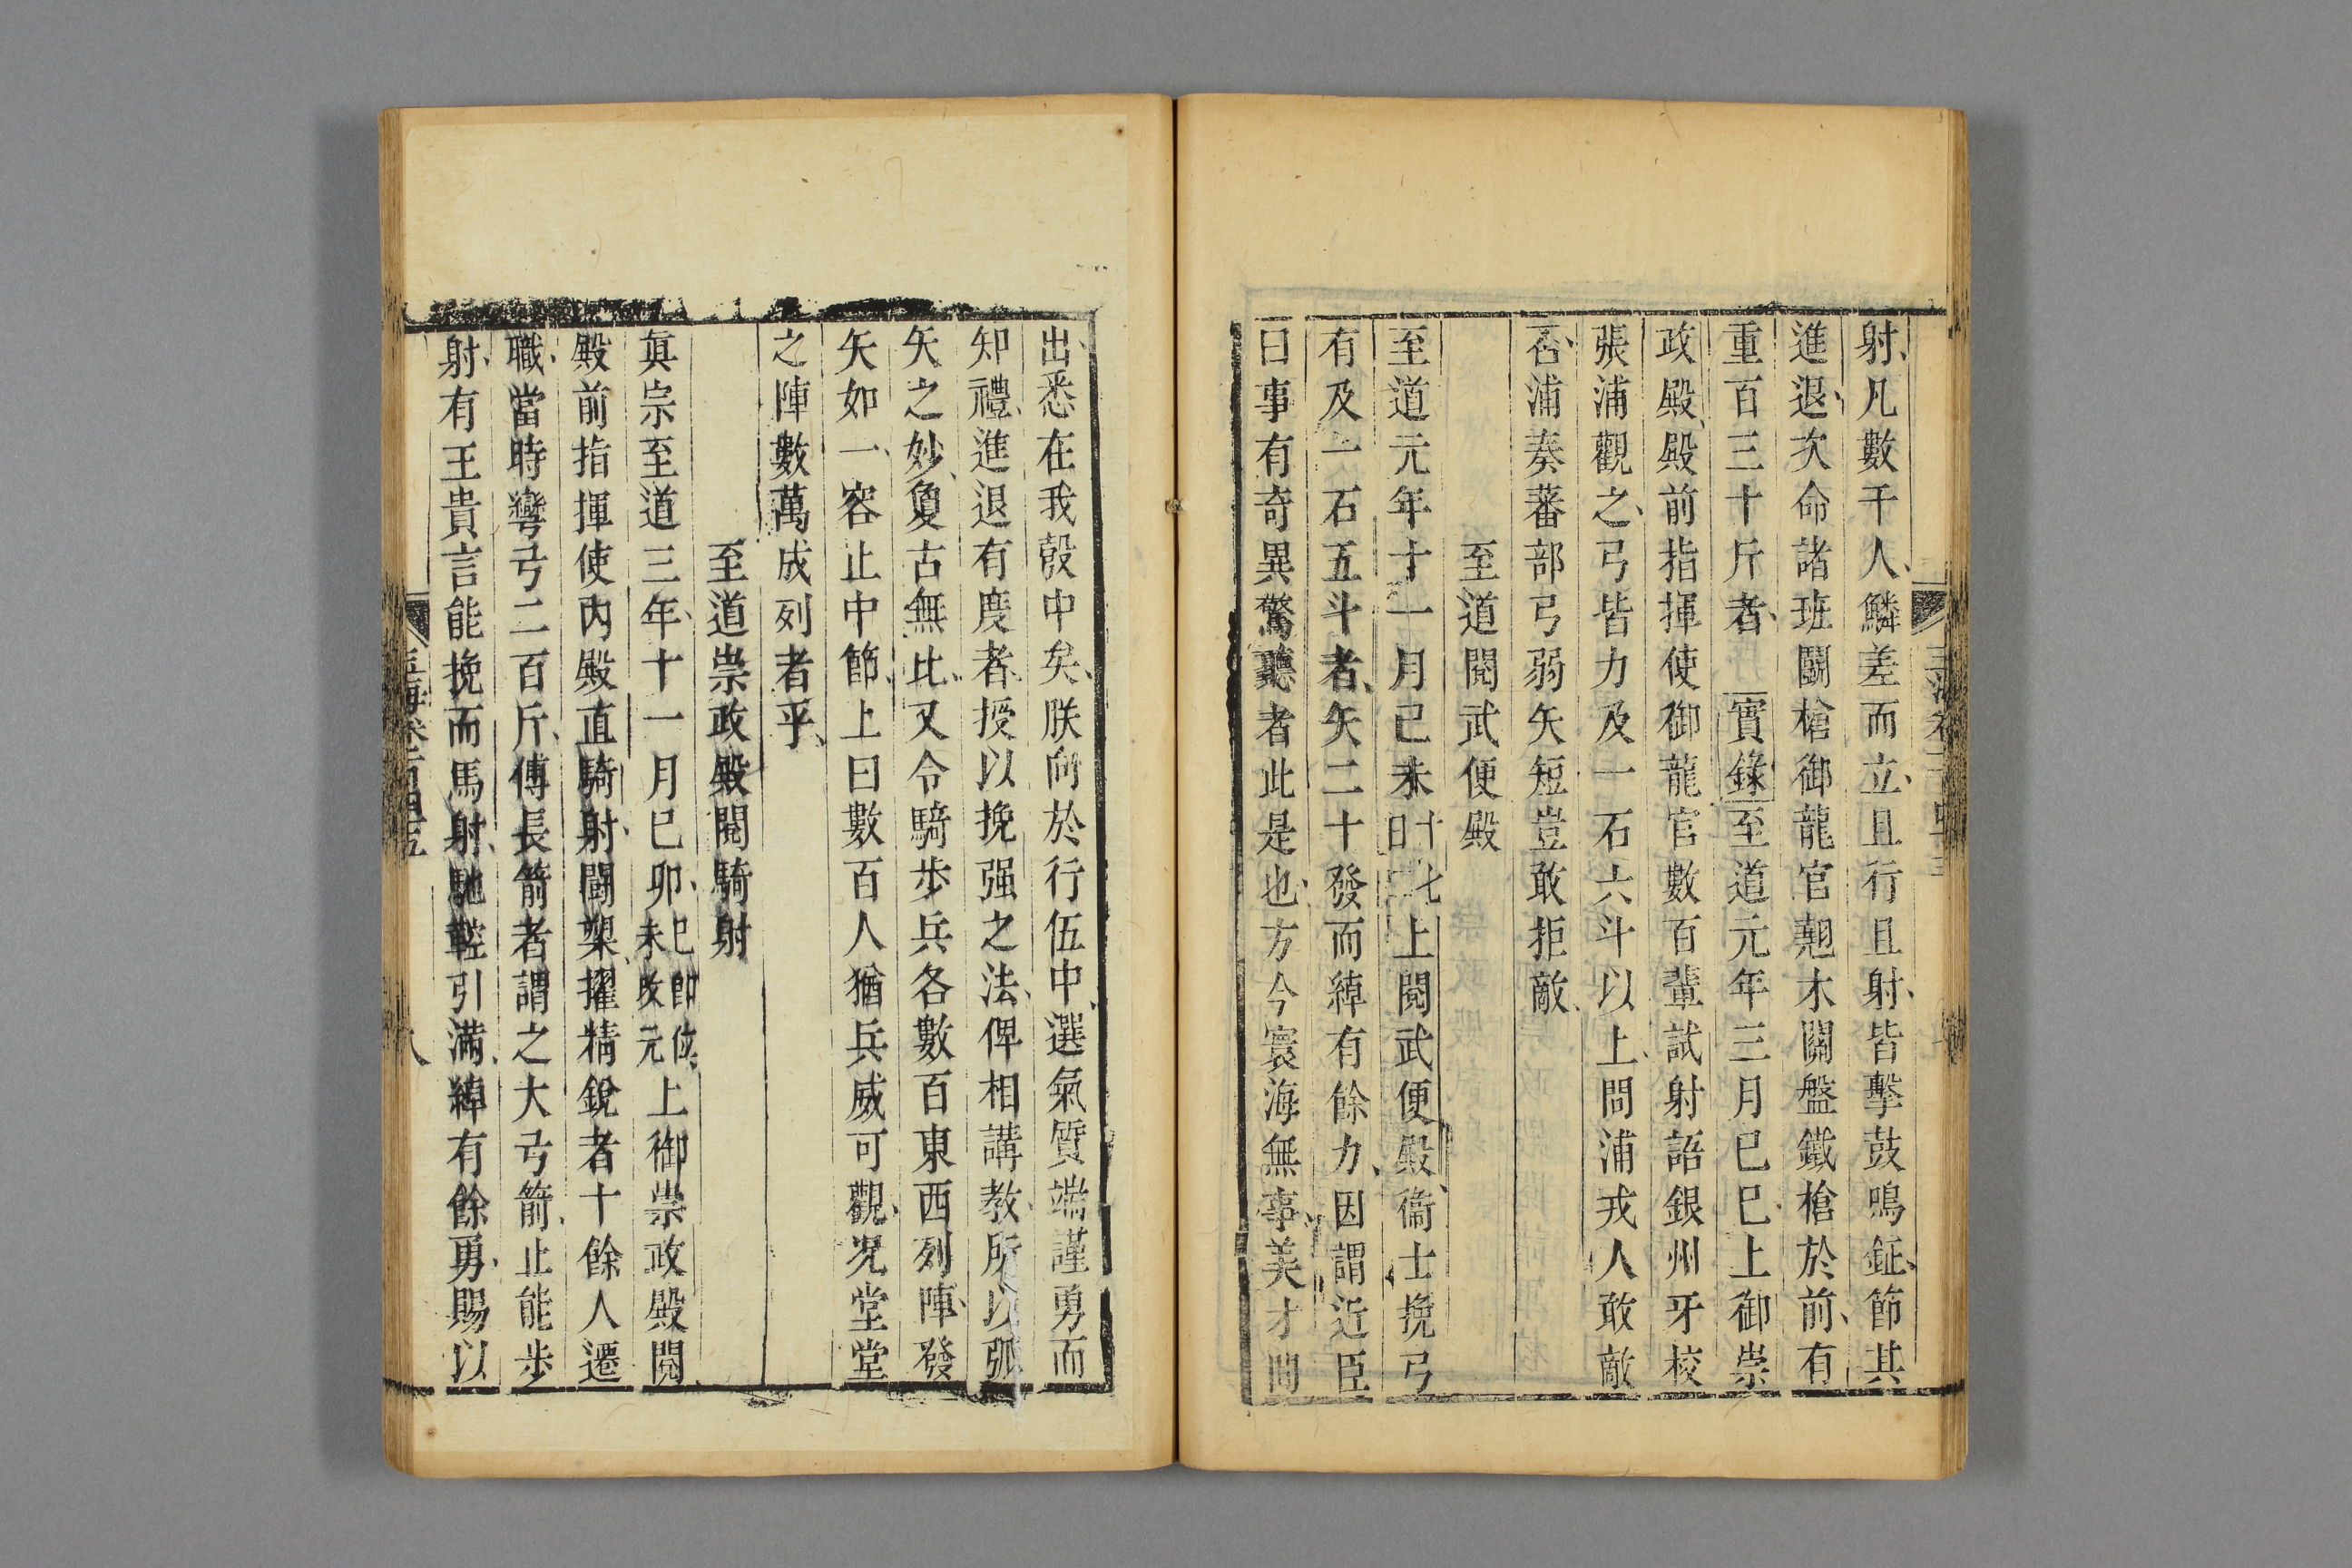 射、凡數千人、鱗差而立、且行且射、皆擊鼓鳴鉦、節其
進退、次命諸班鬭槍御龍官翹木鬭盤鐵槍於前、有
重百三十斤者、實錄至道元年三月巳巳、上御崇
政殿、殿前指揮使御龍官數百輩試射詔銀州牙校
張浦觀之、弓皆力及一石六斗以上、問浦戎人敢敵
否、浦奏蕃部弓弱矢短豈敢拒敵、
至道閱武便殿
至道元年十一月己未十七日上閱武便殿、衞士挽弓
有及一石五斗者、矢二十發而綽有餘力、因謂近臣
曰事有奇異驚聽者此是也、方今寰海無事、美才間
出、悉在我彀中矣、朕向於行伍中、選氣質端謹勇而
知禮、進退有度者、授以挽强之法、俾相講教、所以弧
矢之妙、敻古無比、又令騎步兵各數百東西列陣、發
矢如一、容止中節、上曰數百人猶兵威可觀、况堂堂
之陣數萬成列者乎、
至道崇政殿閱騎射
眞宗至道三年、十一月巳卯、巳卽位、未改元上御崇政殿閱
殿前指揮使內殿直騎射、鬭槊、擢精銳者十餘人遷
職、當時彎弓二百斤、傅長箭者謂之大弓箭、止能步
射、有王貴言能挽而馬射、馳鞚引滿、綽有餘勇、賜以
玉海卷一百四十五
八